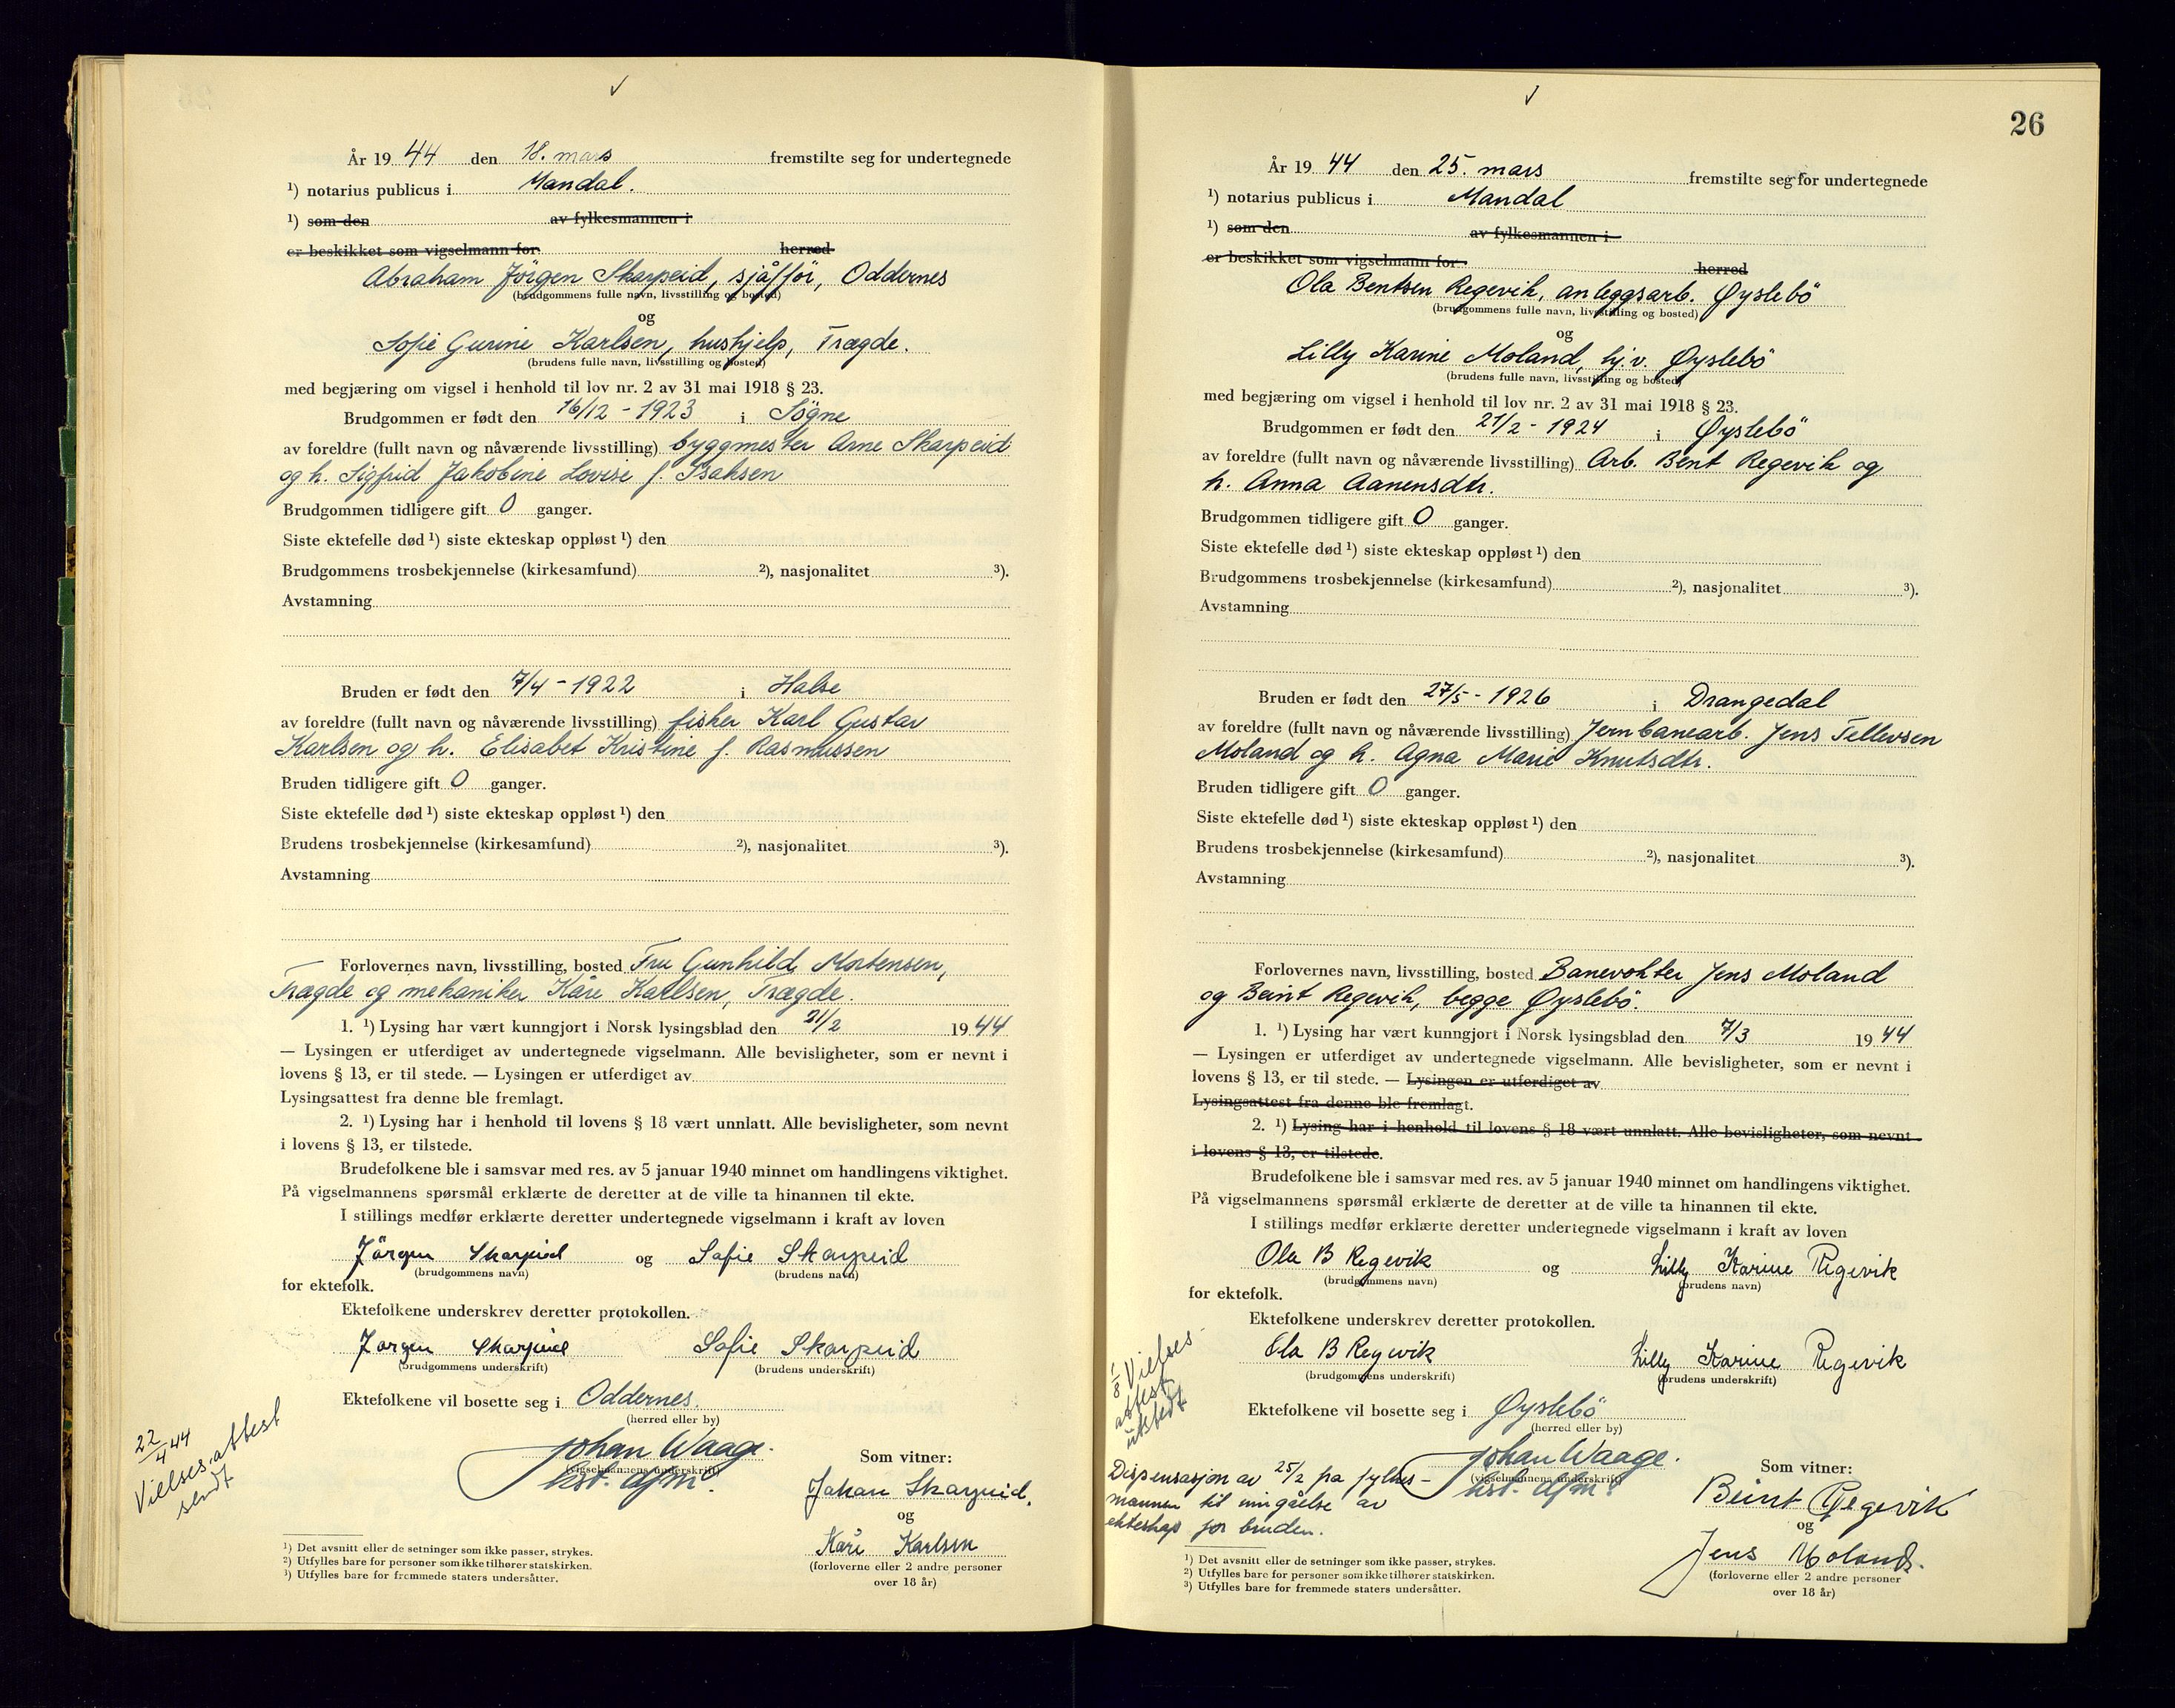 År 19 44 den 18. mars fremstilte seg for undertegnede
¹) notarius publicus i Mandal.
¹) som den av fylkesmannen i
er beskikket som vigselmann for herred
Abraham Jörgen Skarpeid, sjåfför, Oddernes
(brudgommens fulle navn, livsstilling og bosted)
og
Sofie Gurine Karlsen, hushjelp, Trægde.
(brudens fulle navn, livsstilling og bosted)
med begjæring om vigsel i henhold til lov nr. 2 av 31 mai 1918 § 23.
Brudgommen er født den 16/12 - 1923 i Sögne
av foreldre (fullt navn og nåværende livsstilling) byggmester Arne Skarpeid
og h. Sigfrid Jakobine Lovise f. Isaksen
Brudgommen tidligere gift 0 ganger.
Siste ektefelle død ¹) siste ekteskap oppløst ¹) den
Brudgommens trosbekjennelse (kirkesamfund) ²), nasjonalitet ³).
Avstamning
Bruden er født den 7/4 - 1922 i Halse
av foreldre (fullt navn og nåværende livsstilling) fisker Karl Gustav
Karlsen og h. Elisabet Kristine f. Rasmussen
Bruden tidligere gift 0 ganger.
Siste ektefelle død ¹) siste ekteskap oppløst ¹) den
Brudens trosbekjennelse (kirkesamfund) ²), nasjonalitet ³).
Avstamning
Forlovernes navn, livsstilling, bosted Fru Gunhild Mortensen,
Trægde og mekaniker Kåre Karlsen, Trægde.
1. ¹) Lysing har vært kunngjort i Norsk lysingsblad den 21/2 19 44
— Lysingen er utferdiget av undertegnede vigselmann. Alle bevisligheter, som er nevnt i
lovens § 13, er til stede. — Lysingen er utferdiget av
Lysingsattest fra denne ble fremlagt.
2. ¹) Lysing har i henhold til lovens § 18 vært unnlatt. Alle bevisligheter, som nevnt
i lovens § 13, er tilstede.
Brudefolkene ble i samsvar med res. av 5 januar 1940 minnet om handlingens viktighet.
På vigselmannens spørsmål erklærte de deretter at de ville ta hinannen til ekte.
I stillings medfør erklærte deretter undertegnede vigselmann i kraft av loven
Jörgen Skarpeid og Sofie Skarpeid
(brudgommens navn) (brudens navn)
for ektefolk.
Ektefolkene underskrev deretter protokollen.
Jørgen Skarpeid Sofie Skarpeid
(brudgommens underskrift) (brudens underskrift)
Ektefolkene vil bosette seg i Oddernes.
(herred eller by)
22/4 44
Vielsesattest
sendt
Johan Waage.
(vigselmannens underskrift)
kst. dfm.
Som vitner:
Johan Skarpeid.
og
Kåre Karlsen
(forloverne eller 2 andre personer
over 18 år)
¹) Det avsnitt eller de setninger som ikke passer, strykes.
²) Utfylles bare for personer som ikke tilhører statskirken.
³) Utfylles bare for fremmede staters undersåtter.
26
År 19 44 den 25. mars fremstilte seg for undertegnede
¹) notarius publicus i Mandal
¹) som den av fylkesmannen i
er beskikket som vigselmann for herred
Ola Bentsen Regevik, anleggsarb. Øyslebö
(brudgommens fulle navn, livsstilling og bosted)
og
Lilly Karine Moland, hj.v. Øyslebö
(brudens fulle navn, livsstilling og bosted)
med begjæring om vigsel i henhold til lov nr. 2 av 31 mai 1918 § 23.
Brudgommen er født den 21/2 - 1924 i Øyslebö
av foreldre (fullt navn og nåværende livsstilling) Arb. Bent Regevik og
h. Anna Aanensdtr.
Brudgommen tidligere gift 0 ganger.
Siste ektefelle død ¹) siste ekteskap oppløst ¹) den
Brudgommens trosbekjennelse (kirkesamfund) ²), nasjonalitet ³).
Avstamning
Bruden er født den 27/5 - 1926 i Drangedal
av foreldre (fullt navn og nåværende livsstilling) Jernbanearb. Jens Tellevsen
Moland og h. Agna Marie Knutsdtr.
Bruden tidligere gift 0 ganger.
Siste ektefelle død ¹) siste ekteskap oppløst ¹) den
Brudens trosbekjennelse (kirkesamfund) ²), nasjonalitet ³).
Avstamning
Forlovernes navn, livsstilling, bosted Banevokter Jens Moland
og Beint Regevik, begge Øyslebö.
1. ¹) Lysing har vært kunngjort i Norsk lysingsblad den 7/3 19 44
— Lysingen er utferdiget av undertegnede vigselmann. Alle bevisligheter, som er nevnt i
lovens § 13, er til stede. — Lysingen er utferdiget av
Lysingsattest fra denne ble fremlagt.
2. ¹) Lysing har i henhold til lovens § 18 vært unnlatt. Alle bevisligheter, som nevnt
i lovens § 13, er tilstede.
Brudefolkene ble i samsvar med res. av 5 januar 1940 minnet om handlingens viktighet.
På vigselmannens spørsmål erklærte de deretter at de ville ta hinannen til ekte.
I stillings medfør erklærte deretter undertegnede vigselmann i kraft av loven
Ola B Regevik og Lilly Karine Regevik
(brudgommens navn) (brudens navn)
for ektefolk.
Ektefolkene underskrev deretter protokollen.
Ola B Regevik Lilly Karine Regevik
(brudgommens underskrift) (brudens underskrift)
Ektefolkene vil bosette seg i Øyslebö
(herred eller by)
1/8 Vielses
attest
utstedt
Dispensasjon av 25/2 fra fylkes-
mannen til inngåelse av
ekteskap for bruden.
Johan Waage.
(vigselmannens underskrift)
kst. dfm.
Som vitner:
Beint Regevik
og
Jens Moland.
(forloverne eller 2 andre personer
over 18 år)
¹) Det avsnitt eller de setninger som ikke passer, strykes.
²) Utfylles bare for personer som ikke tilhører statskirken.
³) Utfylles bare for fremmede staters undersåtter.